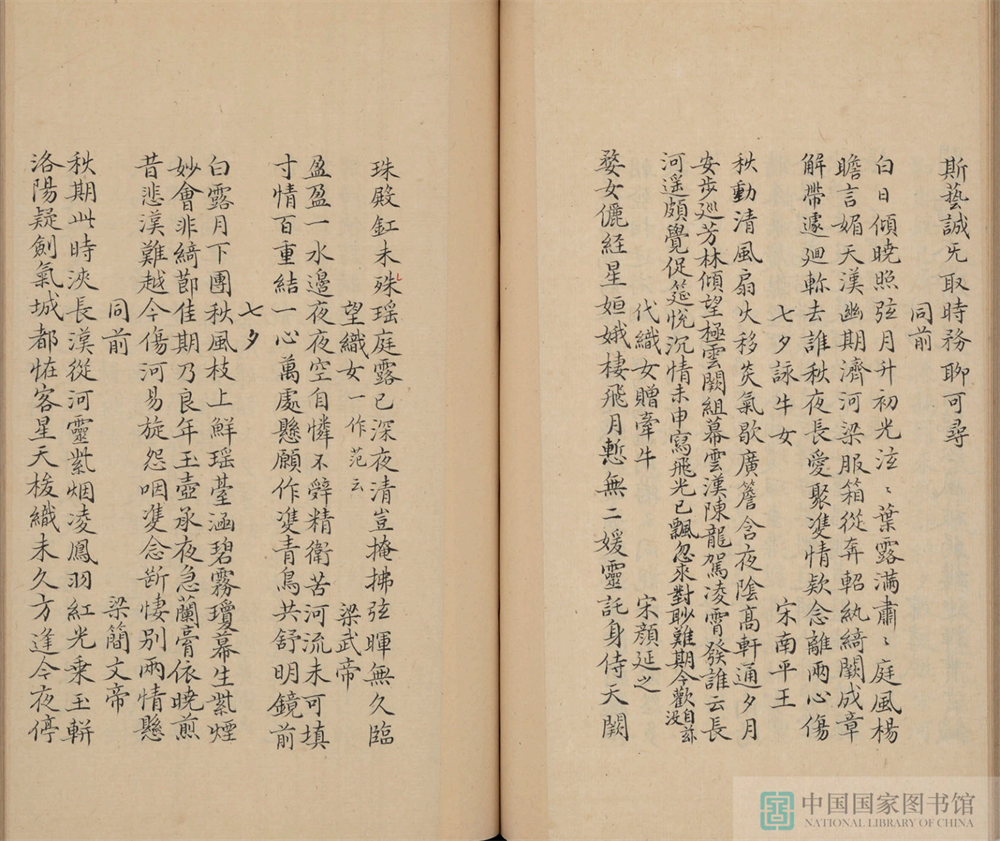 斯藝誠旡取時務聊可尋
同前
白日傾晓照弦月升初光泣〻葉露满肅〻庭風楊
瞻言媚天漢幽期濟河梁服箱從奔軺紈綺闕成章
解帶遽廻軫去誰秋夜長愛聚雙情欵念離兩心傷
七夕詠牛女 宋南平王
秋動清風扇火移炎氣歇廣簷含夜陰高軒通夕月
安步廵芳林傾望極雲闕組幕雲漢陳龍駕凌霄發誰云長
河遥頗覺促筵悅沉情未申寫飛光已飄忽來對眇難期今歡自兹没
代織女贈牽牛 宋顔延之
婺女儷経星姮娥棲飛月慙無二媛靈託身侍天闕
珠殿釭未殊瑶庭露已深夜清豈掩拂弦暉無久臨
望織女一作范云 梁武帝
盈盈一水邊夜夜空自憐不辤精衛苦河流未可填
寸情百重結一心萬處懸願作雙青鳥共舒明鏡前
七夕
白露月下團秋風枝上鮮瑶䑓涵碧霧瓊幕生紫煙
妙會非綺節佳期乃良年玉壺承夜急蘭膏依晓煎
昔悲漢難越今傷河易旋怨咽雙念断悽别兩情懸
同前 梁簡文帝
秋期此時浹長漢從河靈紫烟凌鳳羽紅光乗玉軿
洛陽疑劍氣城都恠客星天梭織未久方逢今夜停
中国国家图书馆
NATIONAL LIBRARY OF CHINA